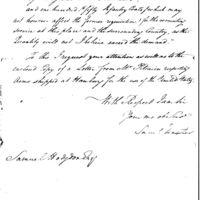 and one hundred & fifty Infantry Coats for which may
not however afford the former requisition "for the recruiting
service at this place and the surrounding Country, as the
Quantity will not I believe exceed the demand"
To this I request your attention as well as to the
enclosed Copy of a Letter from Mr. respecting
Arms shipped at Hamburg for the use of the United States
With Respect I am Sir
Your mo obt Servt
Saml
Samuel Hodgdon Esqr